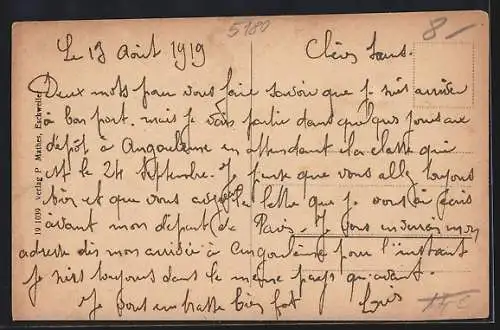 5180
8-
Le 13 Août 1919
Chers
Deux mots pour vous faire savoir que je suis arrivé
à bon port. mais je vais partir dans quelques jours au
dépôt à Angoulème en attendant la classe qui
est le 24 Septembre. Je pense que vous allez toujours
bien et que vous avez la lettre que je vous ai écris
avant mon départ de Paris. Je vous enverrai mon
adresse dès mon arrivée à Angoulème pour l'instant
je suis toujours dans le même pays qu'avant.
Je vous embrasse bien fort
Louis
19 1039 Verlag P. Mathes, Eschweiler